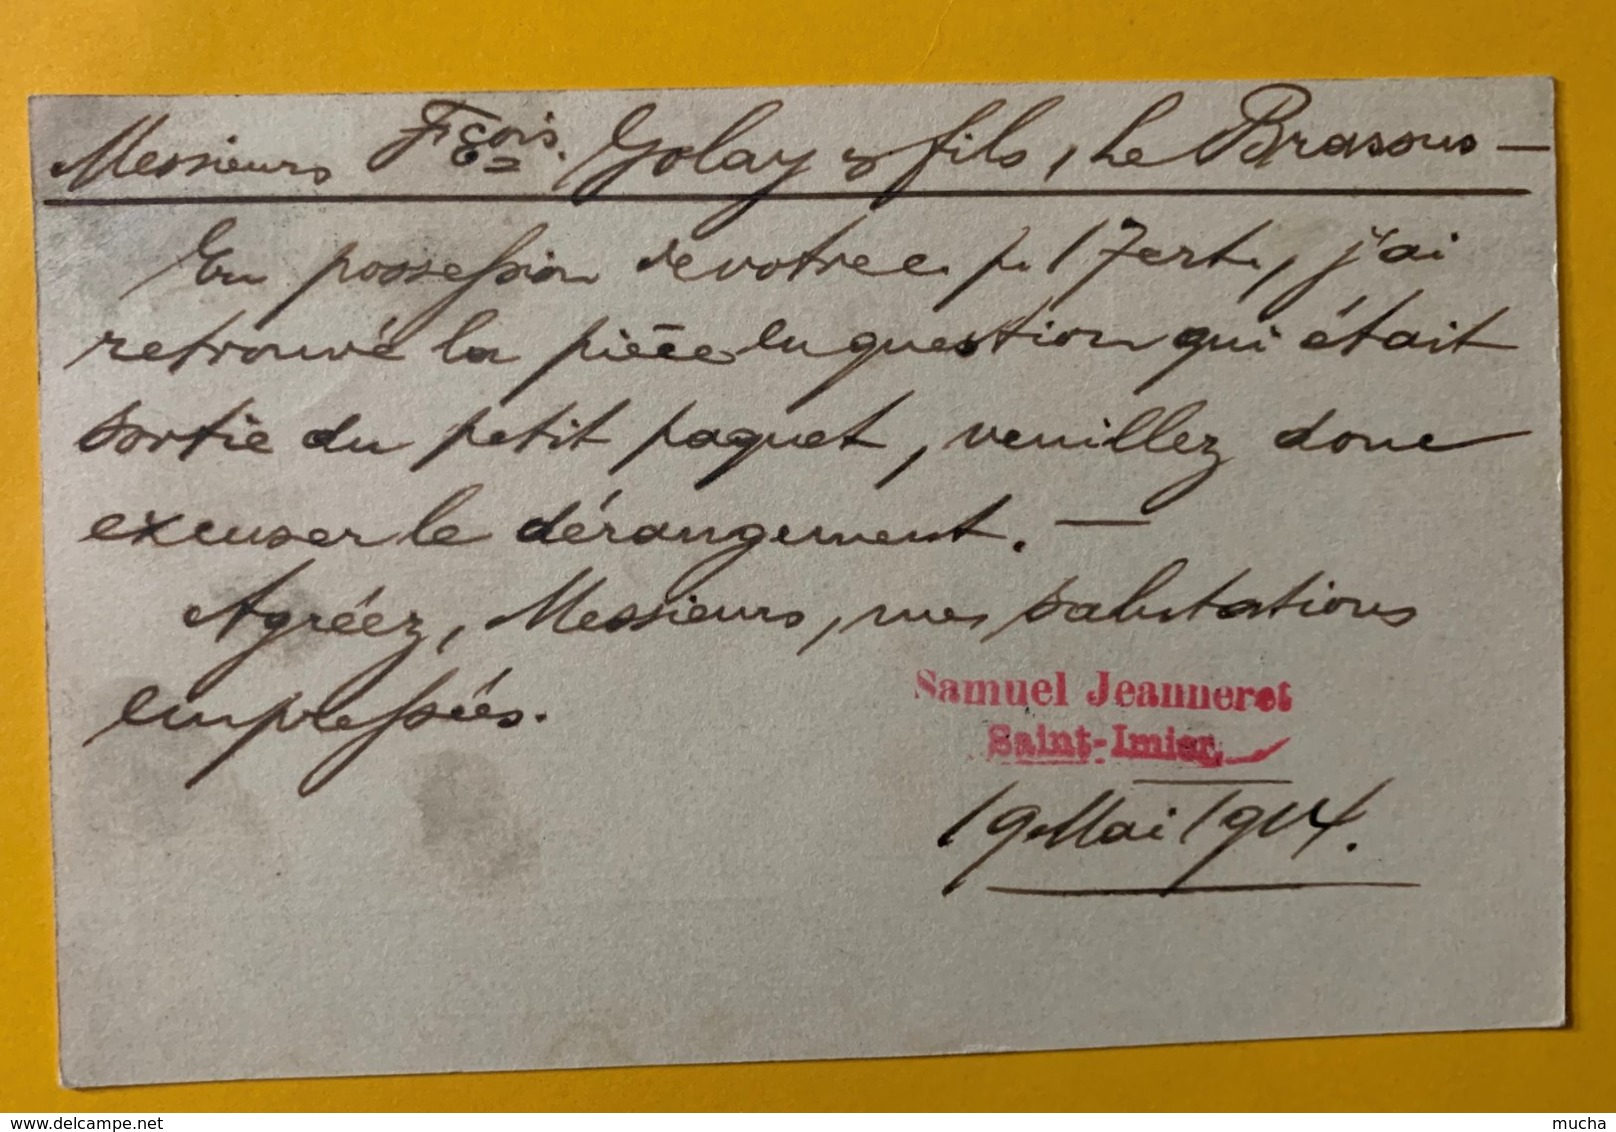 Messieurs Fçois. Golay & fils, Le Brassus —
En possession de votre c. p. 17 crt., j'ai
retrouvé la pièce en question qui était
sortie du petit paquet, veuillez donc
excuser le dérangement. —
Agréez, Messieurs, mes salutations
empressées.
Samuel Jeanneret
Saint-Imier
19 Mai 1904.
delcampe.net
mucha